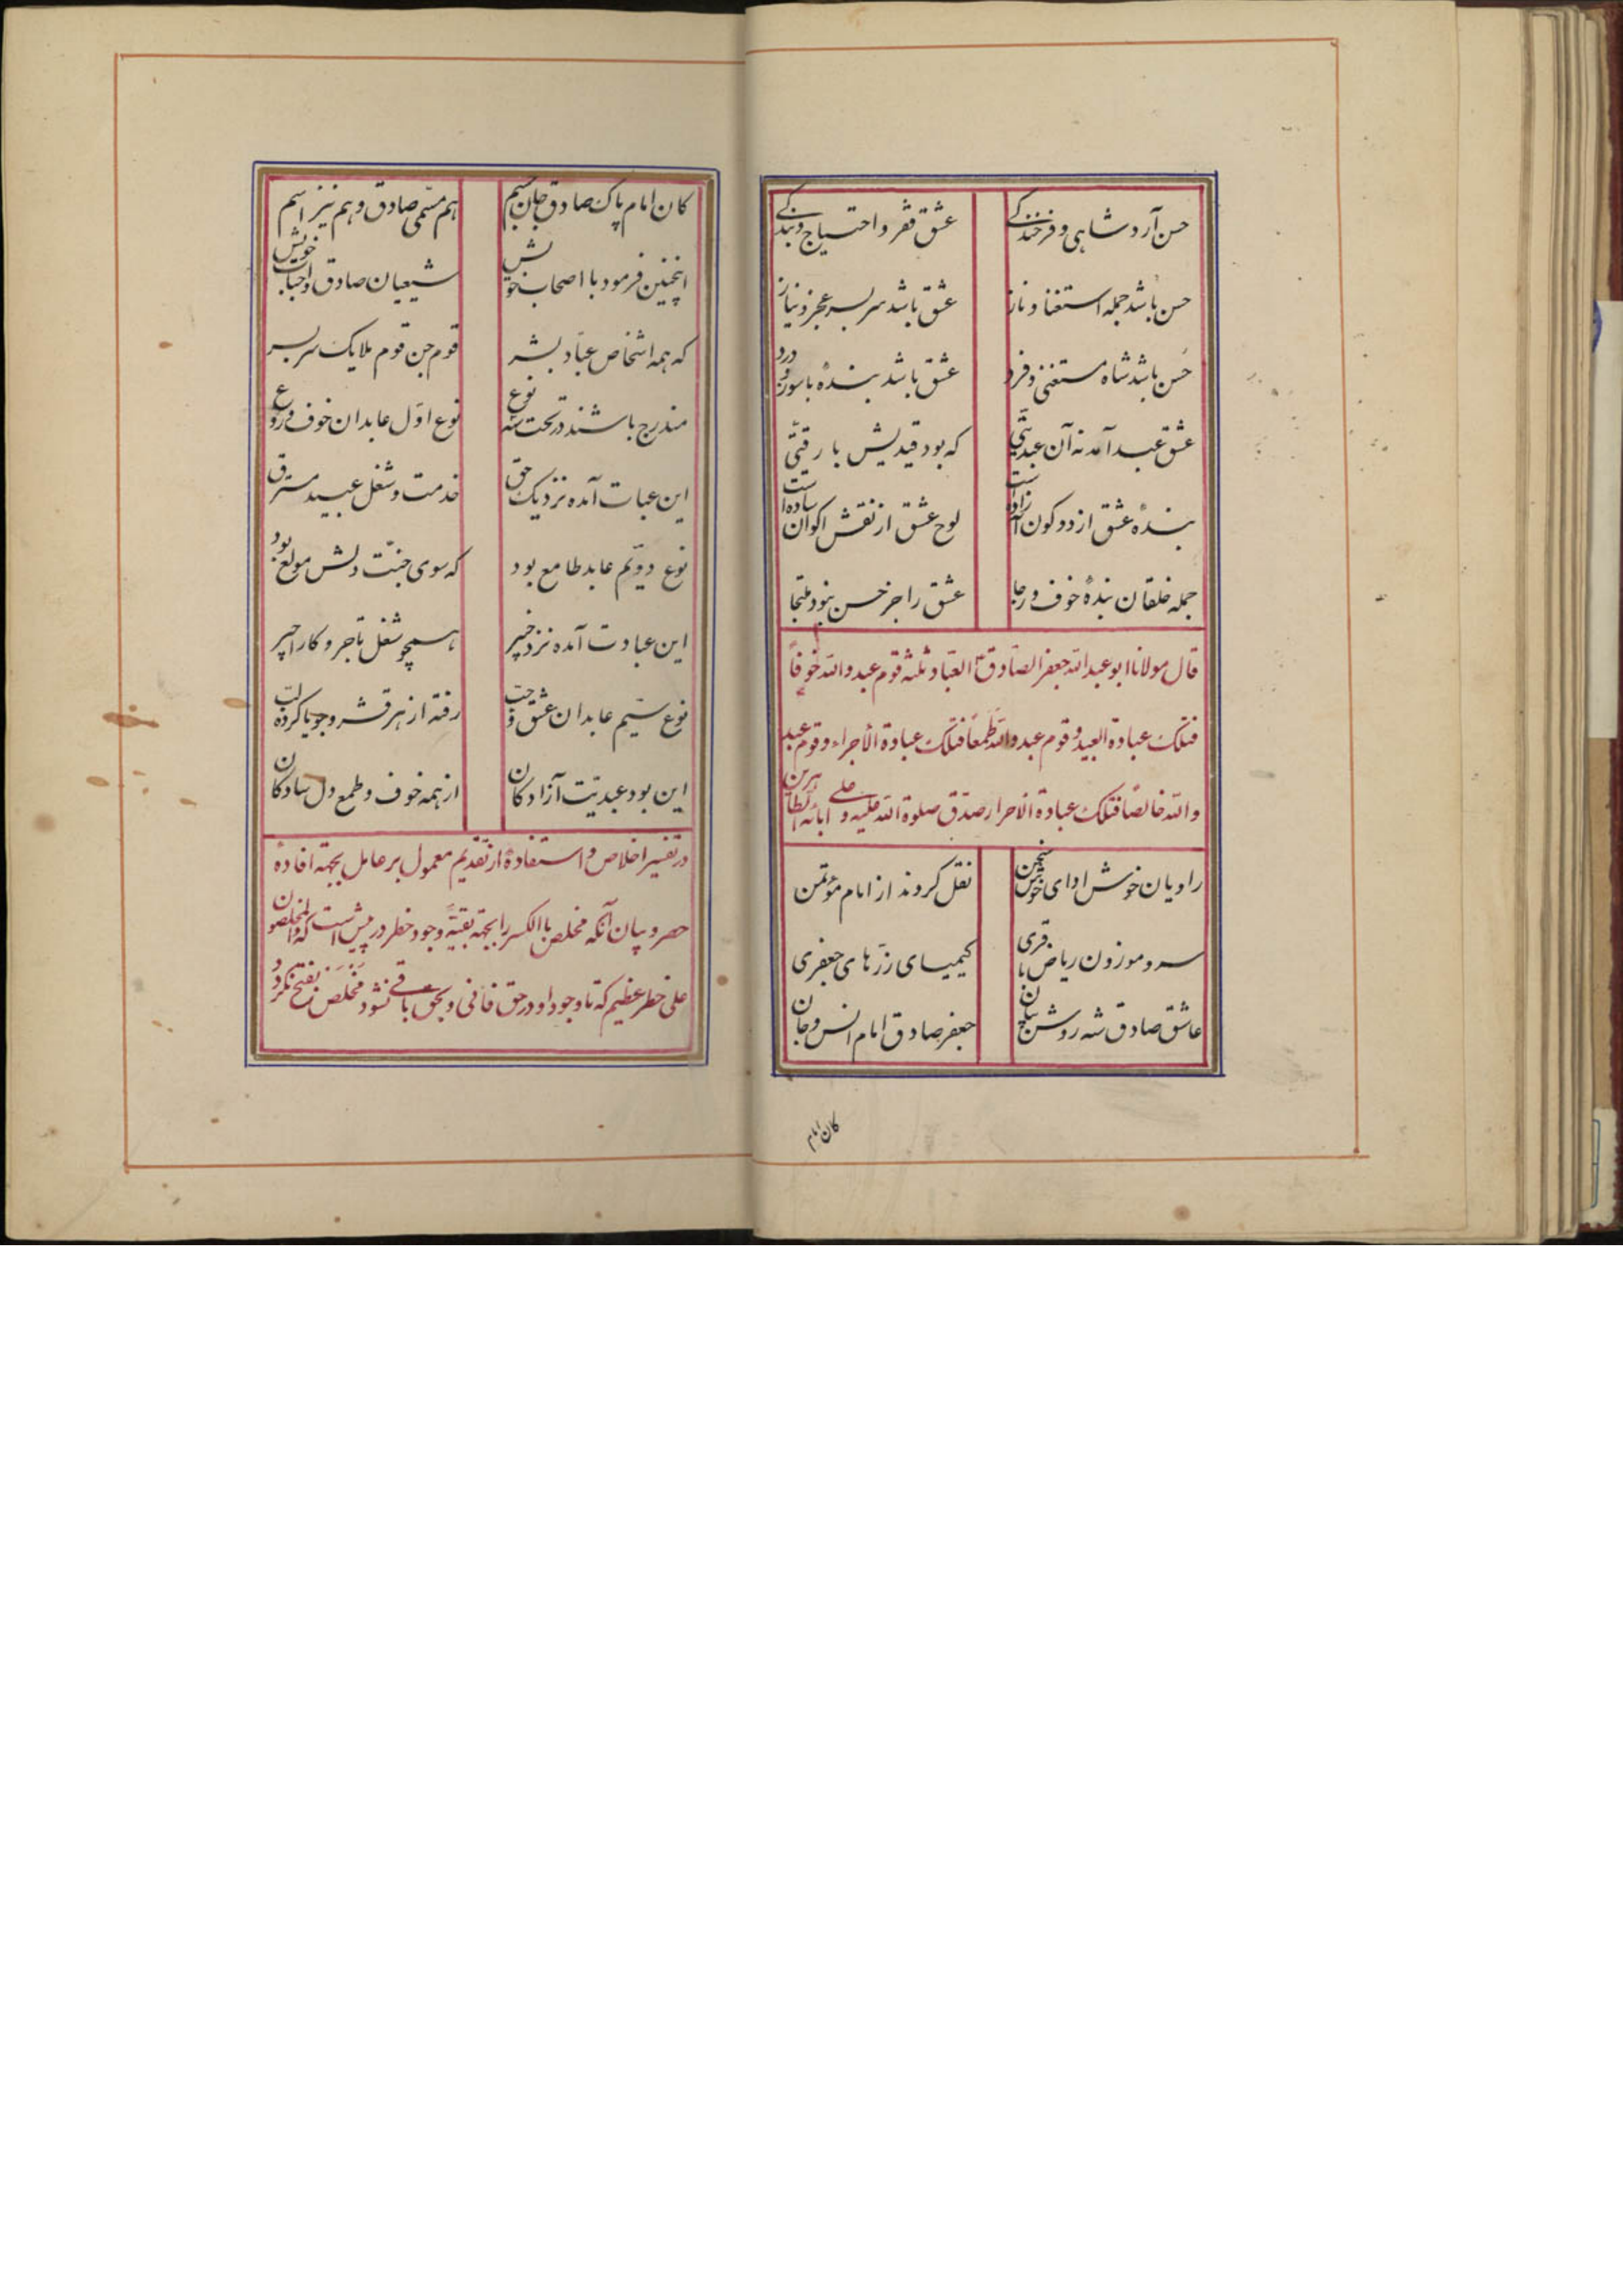 حسن آرد شاهی و فرخندگی عشق فقر و احتیاج و بندگی
حسن باشد جمله استغنا و ناز عشق باشد سربسر عجز و نیاز
حسن باشد شاه مستغنی و فرد عشق باشد بندهٔ با سوز و درد
عشق عبد آمد نه آن عبدیتی که بود قیدیش با رقیتی
بندهٔ عشق از دو کون آزاده است لوح عشق از نقش اکوان ساده است
جمله خلقان بندهٔ خوف و رجا عشق را جز حسن نبود ملتجا
قال مولانا ابو عبد الله جعفر الصادق ع العبّاد ثلثه قوم عبدوا الله خوفاً
فتلک عبادة العبید و قوم عبدوا الله طمعاً فتلک عبادة الأجراء و قوم عبد
والله خالصاً فتلک عبادة الاحرار صدق صلوة الله علیه و علی آبائه الطاهرین
راویان خوش ادای خوش سخن نقل کردند از امام مؤتمن
سرو موزون ریاض باقری کیمیای زرّهای جعفری
عاشق صادق شه روشن جعفر صادق امام انس و جان
کان امام
کان امام پاک صادق جان جسم هم مسمّی صادق و هم نیز اسم
اینچنین فرمود با اصحاب خویش شیعیان صادق و احباب خویش
که همه اشخاص عبّاد بشر قوم جن قوم ملایک سربسر
مندرج باشند در تحت سه نوع نوع اوّل عابدان خوف و روع
این عبات آمده نزدیک حق خدمت و شغل عبید مسترق
نوع دویّم عابد طامع بود که سوی جنّت دلش مولع بود
این عبادت آمده نزد خبیر همچو شغل تاجر و کار اجیر
نوع سیّم عابدان عشق و حبّ رفته از هر قشر و جویا کرده لبّ
این بود عبدیّت آزادکان از همه خوف و طمع دل سادکان
در تفسیر اخلاص و استفادهٔ از تقدیم معمول بر عامل بجهته افادهٔ
حصر و بیان آنکه مخلص باالکسر را بجهة بقیّهٔ وجود خطر در پیش است که والمخلصون
علی خطر عظیم که تا وجود او در حق فانی و بحق باقی نشود مخلَص بفتح نکردد